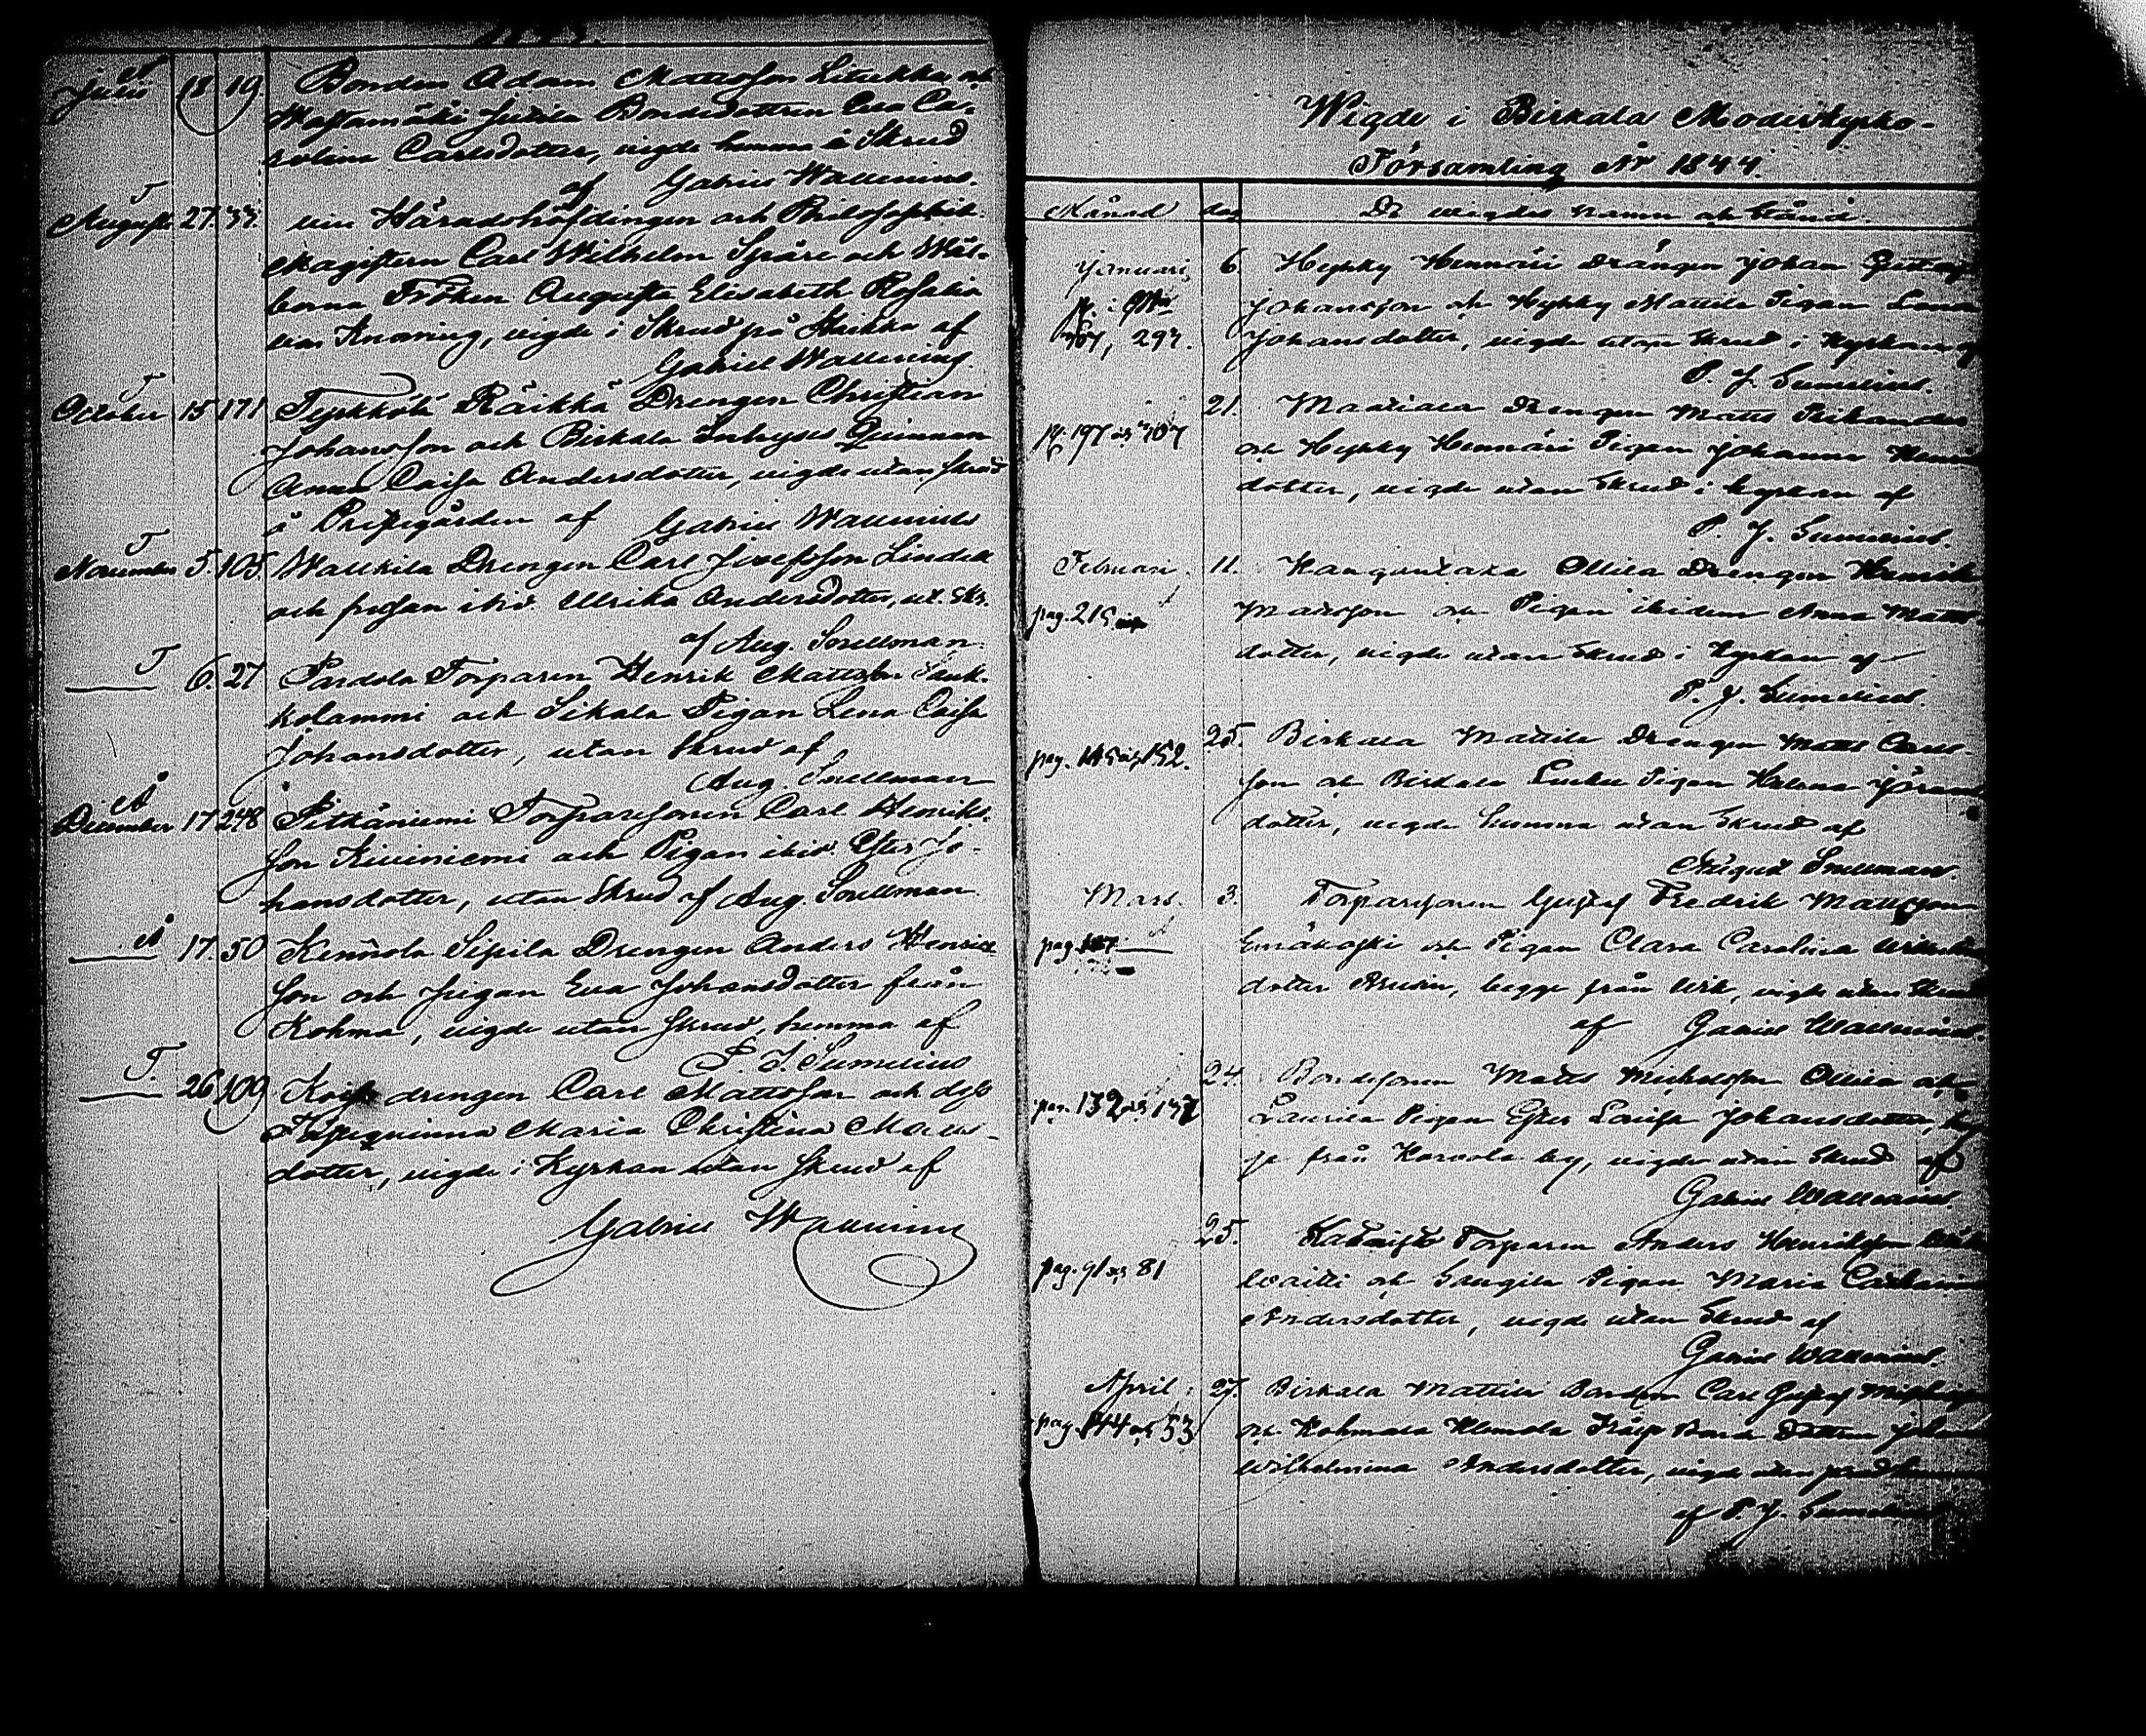 Julii 18 19 Bonden Adam Mattsson Litukka och
Wastamäki Jutila Bondedottren Eva Ca-
rolina Carlsdotter, vigde hemma i Skrud
af Gabriel Wallenius.
Augusti 27. 33. Häradshöfdingen och Philosophiæ
Magistern Carl Wilhelm Spåre och Wäl-
borna Fröken Augusta Elisabeth Rosalia
von Knorring, vigde i Skrud på Haikka af
Gabriel Wallenius.
October 15 171 Tyrkkölä Räikkä Drengen Christian
Johansson och Birkala Inhyses Qvinnan
Anna Caisa Andersdotter, vigde utan skrud
å Prestgården af Gabriel Wallenius
November 5. 105. Drengen Carl Josefsson Lindell
och pigan ibid. Ulrika Andersdotter, ut. Skr.
af Aug. Snellman.
6. 27 Pardola Torparen Henrik Mattsson
kolammi och Sikala Pigan Lena Caisa
Johansdotter, utan Skrud af
Aug. Snellman
December 17 248 Pitkäniemi Torparesonen Carl Henriks-
son Kiviniemi och Pigan ibid. Ester Jo-
hansdotter, utan Skrud af Aug. Snellman.
17. 50 Kennola Sipila Drengen Anders Henriks
son och Pigan Eva Johansdotter från
Kohma, vigde utan Skrud, hemma af
P. J. Sumelius
26 109 drengen Carl Mattsson och
qvinna Maria Christina Matts-
dotter, vigde i Kyrkan utan Skrud af
Gabriel Wallenius
Wigde i Birkala Moderkyrko-
Församling År 1844.
Månad dag De vigdes namn och stånd.
Januari 6. Hyhky Hennäri Drängen Johan Gustaf
Johansson och Hyhky Mattila Pigan
297. Johansdotter, vigde utan Skrud i Kyrkan af
P. J. Sumelius.
21. Drengen Matts
pag. 197 och 307 och Hyhky Hennäri Pigan Johanna
dotter, vigde utan Skrud i kyrkan af
P. J. Sumelius.
Februari 11. Kangontaka Ollila Drengen Henrik
pag. 215 Mattsson och Pigan ibidem Anna Matts-
dotter, vigde utan Skrud i Kyrkan af
P. J. Sumelius.
25. Birkala Mattila Drengen Matts Carls-
pag. 145 och 152. son och Birkala Pigan Helena Jörans
dotter, vigde hemma utan Skrud af
August Snellman.
Mars. 3. Torparesonen Gustaf Fredrik Mattsson
pag. Emäkoski och Pigan Clara Carolina
dotter, begge från Wik, vigde utan Skrud
af Gabriel Wallenius.
24. Bondesonen Matts Michelsson Ollila och
pag. 132 och 137 Laurila Pigan Ester Lovisa Johansdotter, beg-
ge från Korvola by, vigde utan Skrud af
Gabriel Wallenius.
25. Torparen Anders Henriksson
pag. 91 och 81 och Pigan Maria Catharina
Andersdotter, vigde utan Skrud af
Gabriel Wallenius.
April 27. Birkala Mattila Bonden Carl Gustaf
pag. 144 och 53 och Kohmala Klemola Bonde Dottren
Wilhelmina Andersdotter, vigde utan skrud hemma
af P. J. Sumelius